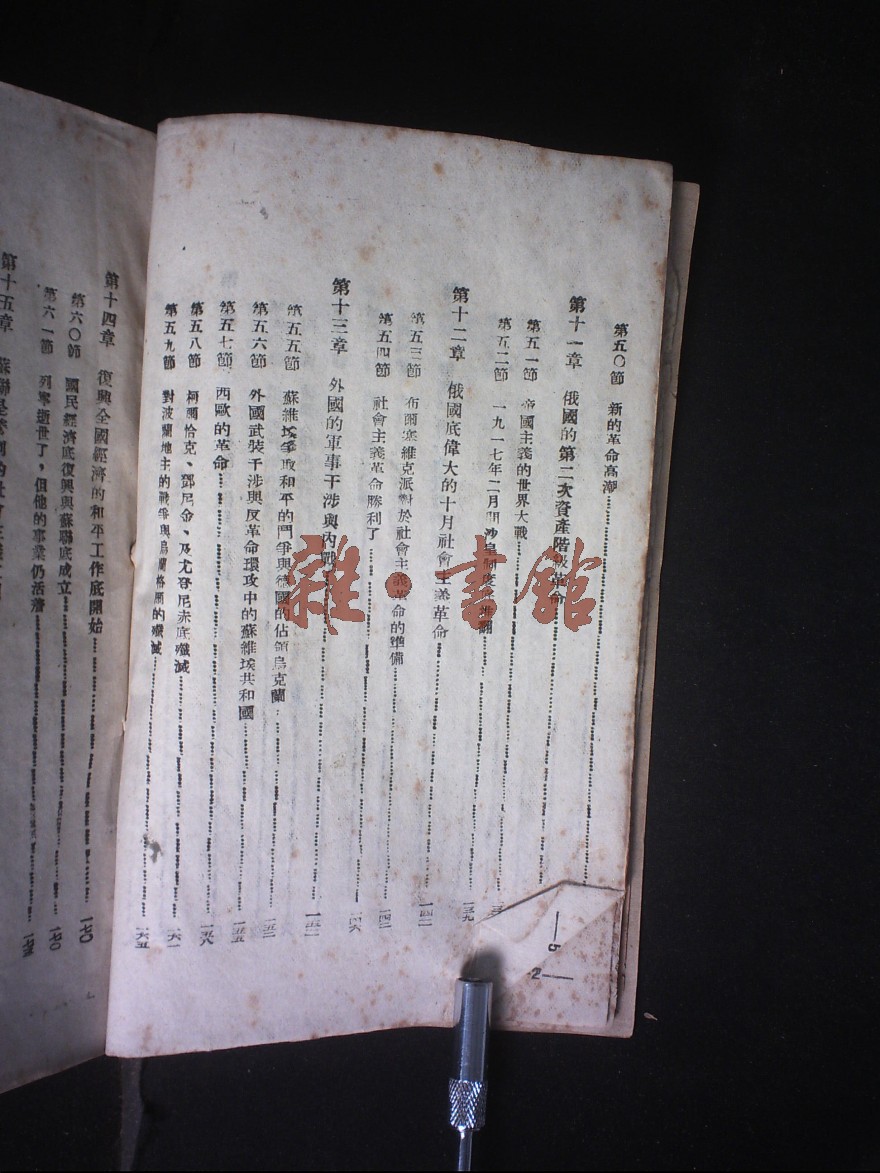 第五〇節 新的革命高潮
第十一章 俄國的第二次資產階級革命
第五一節 帝國主義的世界大戰
第五二節 一九一七年二月間沙皇制度
第十二章 俄國底偉大的十月社會主義革命
一三九
第五三節 布爾塞維克派對於社會主義革命的準備
一四二
第五四節 社會主義革命勝利了
一四二
一四六
第十三章 外國的軍事干涉與內戰
一五二
第五五節 蘇維埃爭取和平的鬥爭與德國的佔領烏克蘭
一五二
第五六節 外國武裝干涉與反革命環攻中的蘇維埃共和國
一五五
第五七節 西歐的革命
一五八
第五八節 柯爾恰克、鄧尼金、及尤登尼赤底殲滅
一六一
第五九節 對波蘭地主的戰爭與烏蘭格爾的殲滅
一六五
第十四章 復興全國經濟的和平工作底開始
一七〇
第六〇節 國民經濟底復興與蘇聯底成立
一七〇
第六一節 列寧逝世了，但他的事業仍活着
一七五
第十五章 蘇聯是
5
2
雜·書館